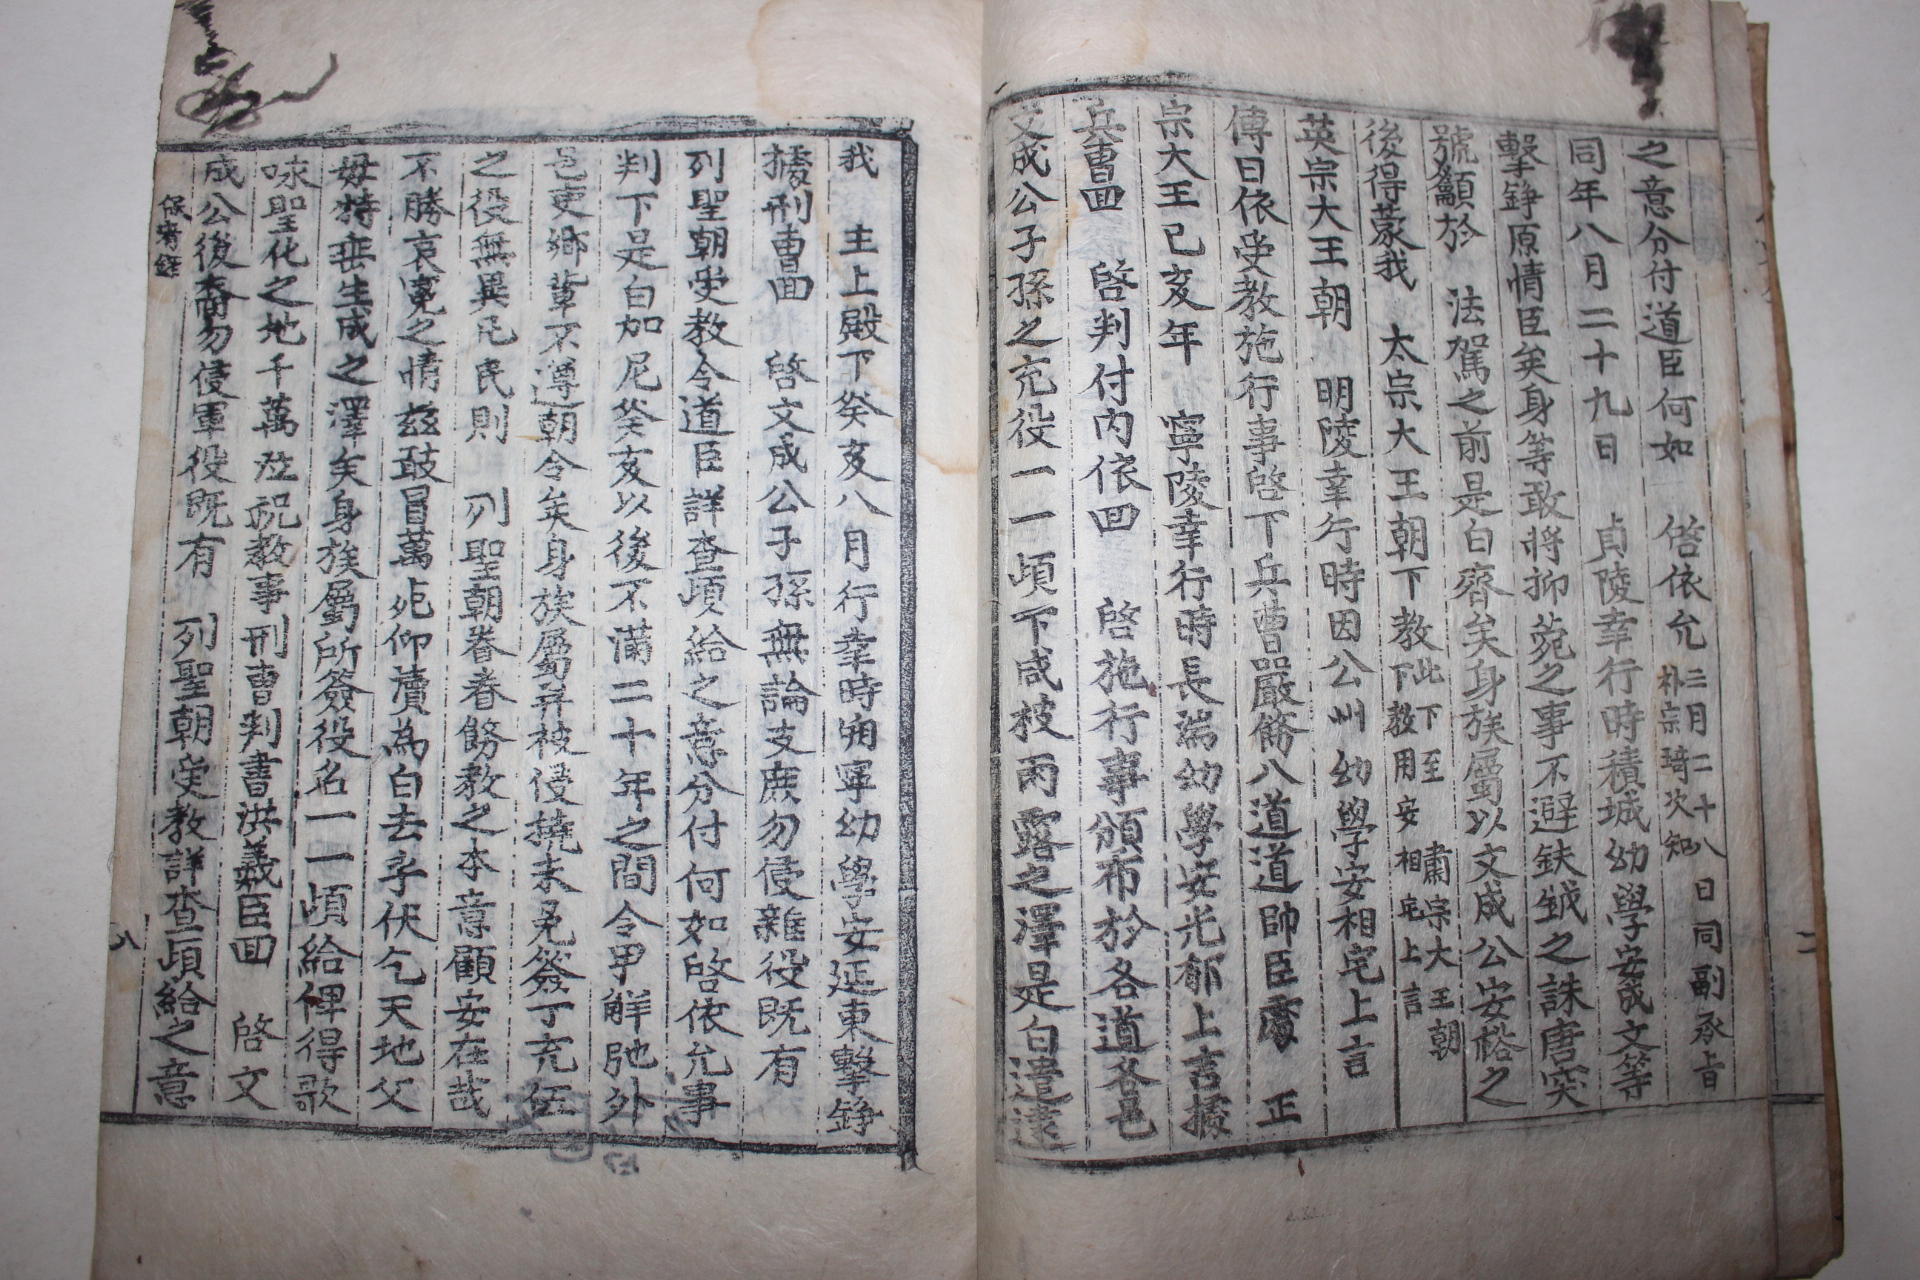 之意分付道臣何如 啓依允 三月二十八日同副承旨朴宗琦次知
同年八月二十九日 貞陵幸行時積城幼學安成文等
擊錚原情臣矣身等敢將抑菀之事不避鈇鉞之誅唐突
號籲於 法駕之前是白齊矣身族屬以文成公安裕之
後得蒙我 太宗大王朝下教 此下至 肅宗大王朝下教用安相宅上言
英宗大王朝 明陵幸行時因公州幼學安相宅上言
傳曰依受教施行事啓下兵曹嚴飭八道道帥臣處 正
宗大王己亥年 寧陵幸行時長湍幼學安光郁上言據
兵曹回 啓判付內依回 啓施行事頒布於各道各邑
文成公子孫之充役一一頉下咸被雨露之澤是白遣逮
我 主上殿下癸亥八月行幸時朔寧幼學安延東擊錚
據刑曹回 啓文成公子孫無論支庶勿侵雜役既有
列聖朝受教令道臣詳查頉給之意分付何如啓依允事
判下是白加尼癸亥以後不滿二十年之間令甲解弛外
邑吏鄉輩不遵朝令矣身族屬并被侵撓未免簽丁充伍
之役無異凡民則 列聖朝眷眷飭教之本意顧安在哉
不勝哀寃之情玆敢冒萬死仰瀆為白去乎伏乞天地父
母特垂生成之澤矣身族屬所簽役名一一頉給俾得歌
咏聖化之地千萬泣祝教事刑曹判書洪羲臣回 啓文
成公後裔勿侵軍役既有 列聖朝受教詳查頉給之意
八
二